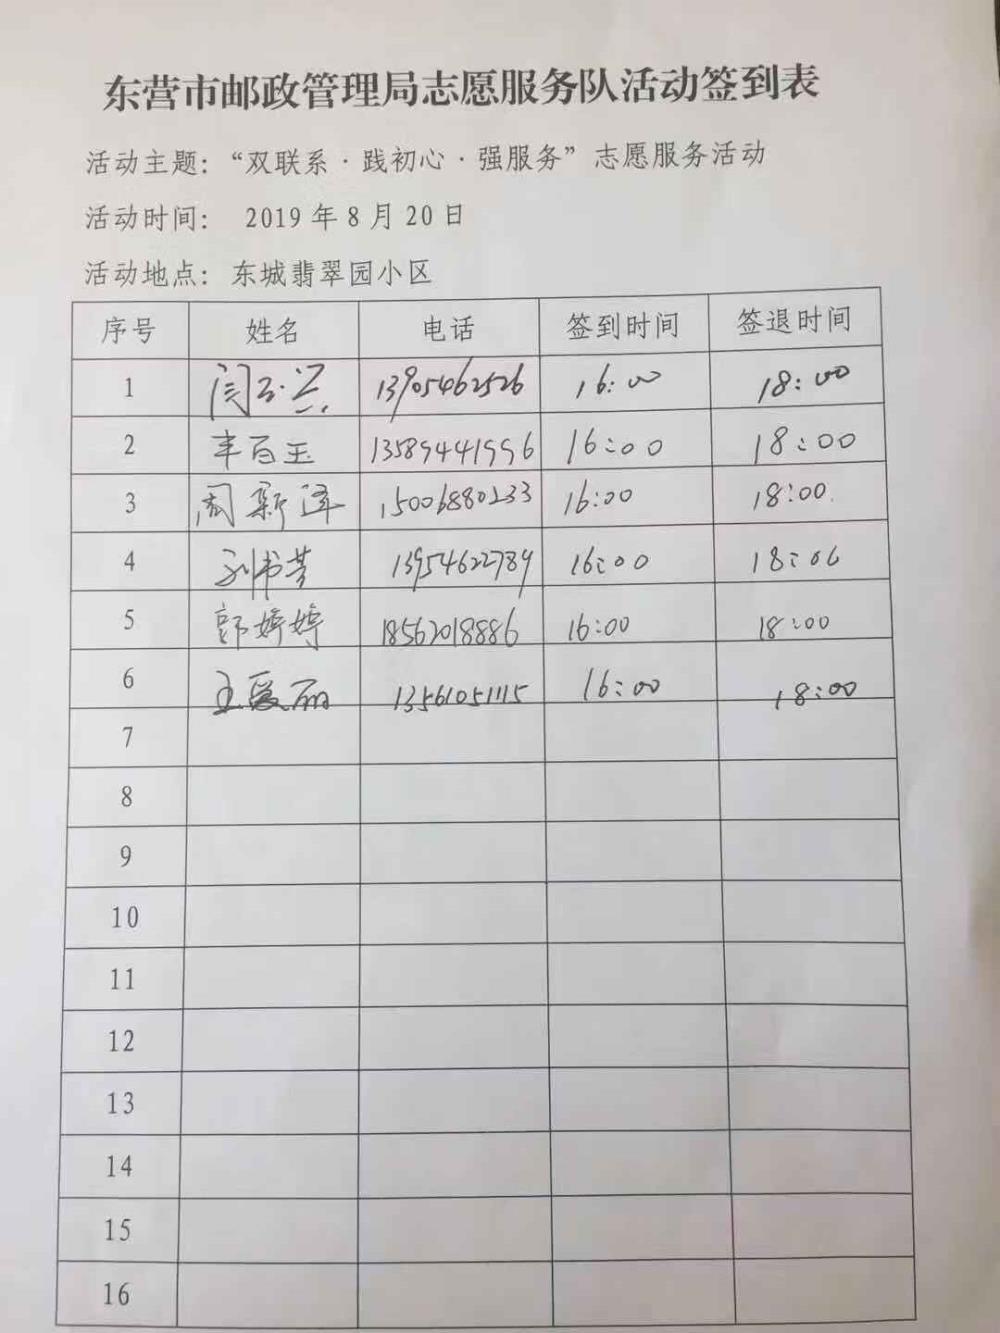 东营市邮政管理局志愿服务队活动签到表
活动主题：“双联系·践初心·强服务”志愿服务活动
活动时间： 2019年8月20日
活动地点：东城翡翠园小区
序号 姓名 电话 签到时间 签退时间
1 13905462526 16:00 18:00
2 丰百玉 13589441996 16:00 18:00
3 周新泽 15006880233 16:00 18:00
4 刘书芳 13954622789 16:00 18:00
5 郭婷婷 18562018886 16:00 18:00
6 王爱丽 13561051115 16:00 18:00
7
8
9
10
11
12
13
14
15
16